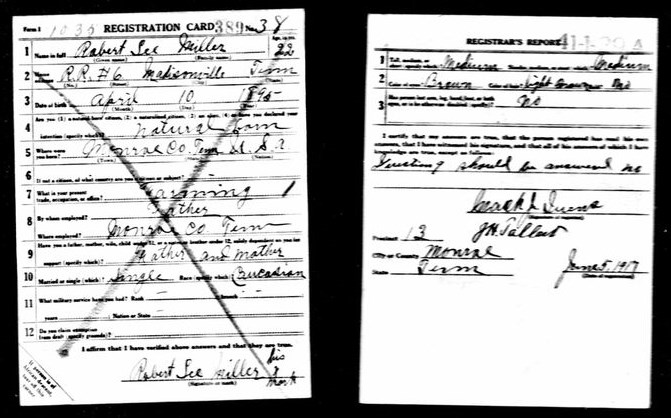 Form 1 1035 REGISTRATION CARD 389 No. 38
1 Name in full Robert Lee Miller Age, in yrs. 22
(Given name) (Family name)
2 Home R.R. #6 Madisonville Tenn
(No.) (Street) (City) (State)
3 Date of birth April 10 1895
(Month) (Day) (Year)
4 Are you (1) a natural-born citizen, (2) a naturalized citizen, (3) an alien, (4) or have you declared your
intention (specify which)? natural born
5 Where were you born? Monroe Co Tenn U. S. A
(Town) (State) (Nation)
6 If not a citizen, of what country are you a citizen or subject?
7 What is your present trade, occupation, or office? Farming 1
8 By whom employed? Father
Where employed? Monroe Co Tenn
9 Have you a father, mother, wife, child under 12, or a sister or brother under 12, solely dependent on you for
support (specify which)? Father and mother
10 Married or single (which)? Single Race (specify which)? Caucasian
11 What military service have you had? Rank — Branch —
years Nation or State
12 Do you claim exemption from draft (specify grounds)?
I affirm that I have verified above answers and that they are true.
Robert Lee Miller his x mark
(Signature or mark)
If person is of African descent, tear off this corner
REGISTRAR'S REPORT 41-1-30 A
1 Tall, medium, or short (specify which)? Medium Slender, medium, or stout (which)? Medium
2 Color of eyes? Brown Color of hair? Light brown Bald? No
3 Has person lost arm, leg, hand, foot, or both eyes, or is he otherwise disabled (specify)? No
I certify that my answers are true, that the person registered has read his own
answers, that I have witnessed his signature, and that all of his answers of which I
have knowledge are true, except as follows:
should be answered no
(Signature of registrar)
Precinct 13
City or County Monroe
State Tenn June 5, 1917
(Date of registration)